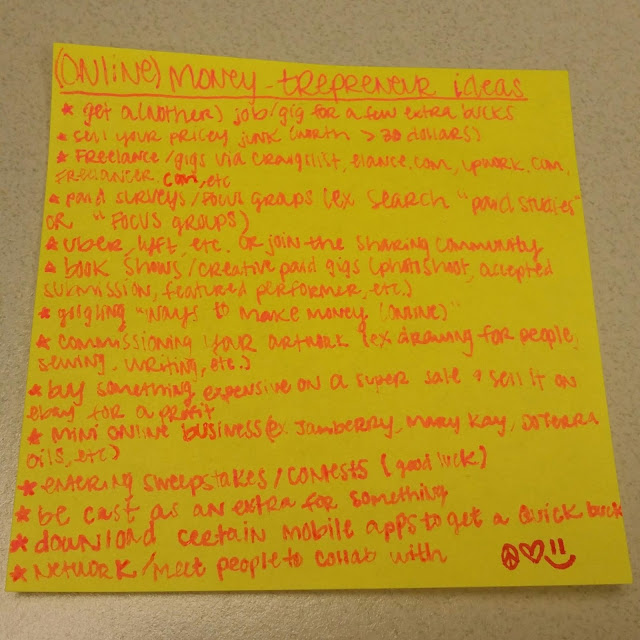 (ONLINE) MONEY-TREPRENEUR IDEAS
* get a(nother) job/gig for a few extra bucks
* sell your pricey junk (worth > 30 dollars)
* Freelance/gigs via craigslist, elance.com, upwork.com,
Freelancer.com, etc
* paid surveys/focus groups (ex search "paid studies"
or "Focus groups)
* uber, lyft, etc. or join the sharing community
* book shows/creative paid gigs (photoshoot, accepted
submission, featured performer, etc.)
* googling "ways to make money (online)"
* commissioning your artwork (ex drawing for people,
sewing, writing, etc.)
* buy something expensive on a super sale & sell it on
ebay for a profit
* mini online business (ex. Jamberry, Mary Kay, DoTerra
oils, etc)
* entering sweepstakes/contests (good luck)
* be cast as an extra for something
* download certain mobile apps to get a quick buck
* Network/meet people to collab with